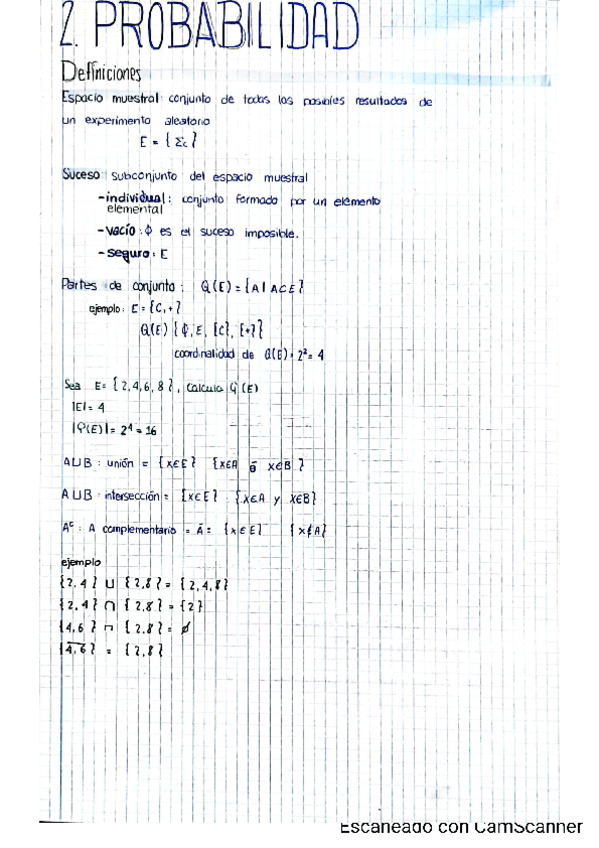 2. PROBABILIDAD
Definiciones
Espacio muestral: conjunto de todos los posibles resultados de
un experimento aleatorio
E = { Σc }
Suceso: subconjunto del espacio muestral
- individual: conjunto formado por un elemento
elemental
- vacío: ϕ es el suceso imposible.
- seguro: E
Partes de conjunto: Q(E) = {A | A ⊂ E}
ejemplo: E = {C, +}
Q(E) { ϕ, E, {C}, {+} }
coordinalidad de Q(E) = 2² = 4
Sea E = { 2, 4, 6, 8 }, calcula φ(E)
|E| = 4
|φ(E)| = 2⁴ = 16
A ∪ B : unión = {x ∈ E} {x ∈ A ó x ∈ B }
A ∪ B : intersección = {x ∈ E} : {x ∈ A y x ∈ B}
Aᶜ : A complementario = Ā = {x ∈ E} {x ∉ A}
ejemplo
{2, 4} ∪ {2, 8} = {2, 4, 8}
{2, 4} ∩ {2, 8} = {2}
{4, 6} ∩ {2, 8} = ø
{4̅,̅ 6̅} = {2, 8}
Escaneado con CamScanner